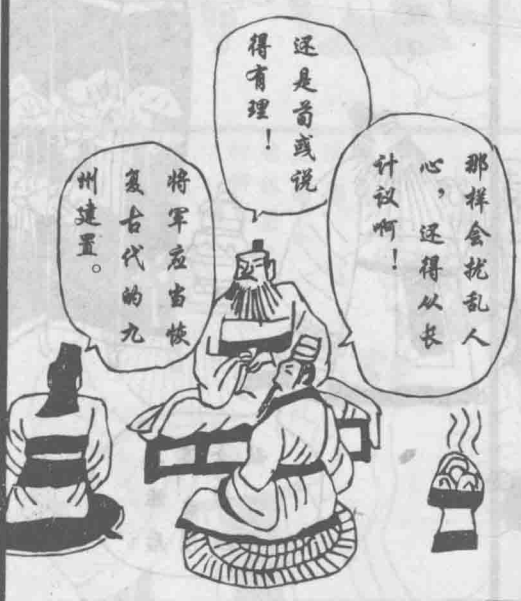 将军应当恢
复古代的九
州建置。
那样会扰乱人
心，还得从长
计议啊！
还是荀彧说
得有理！